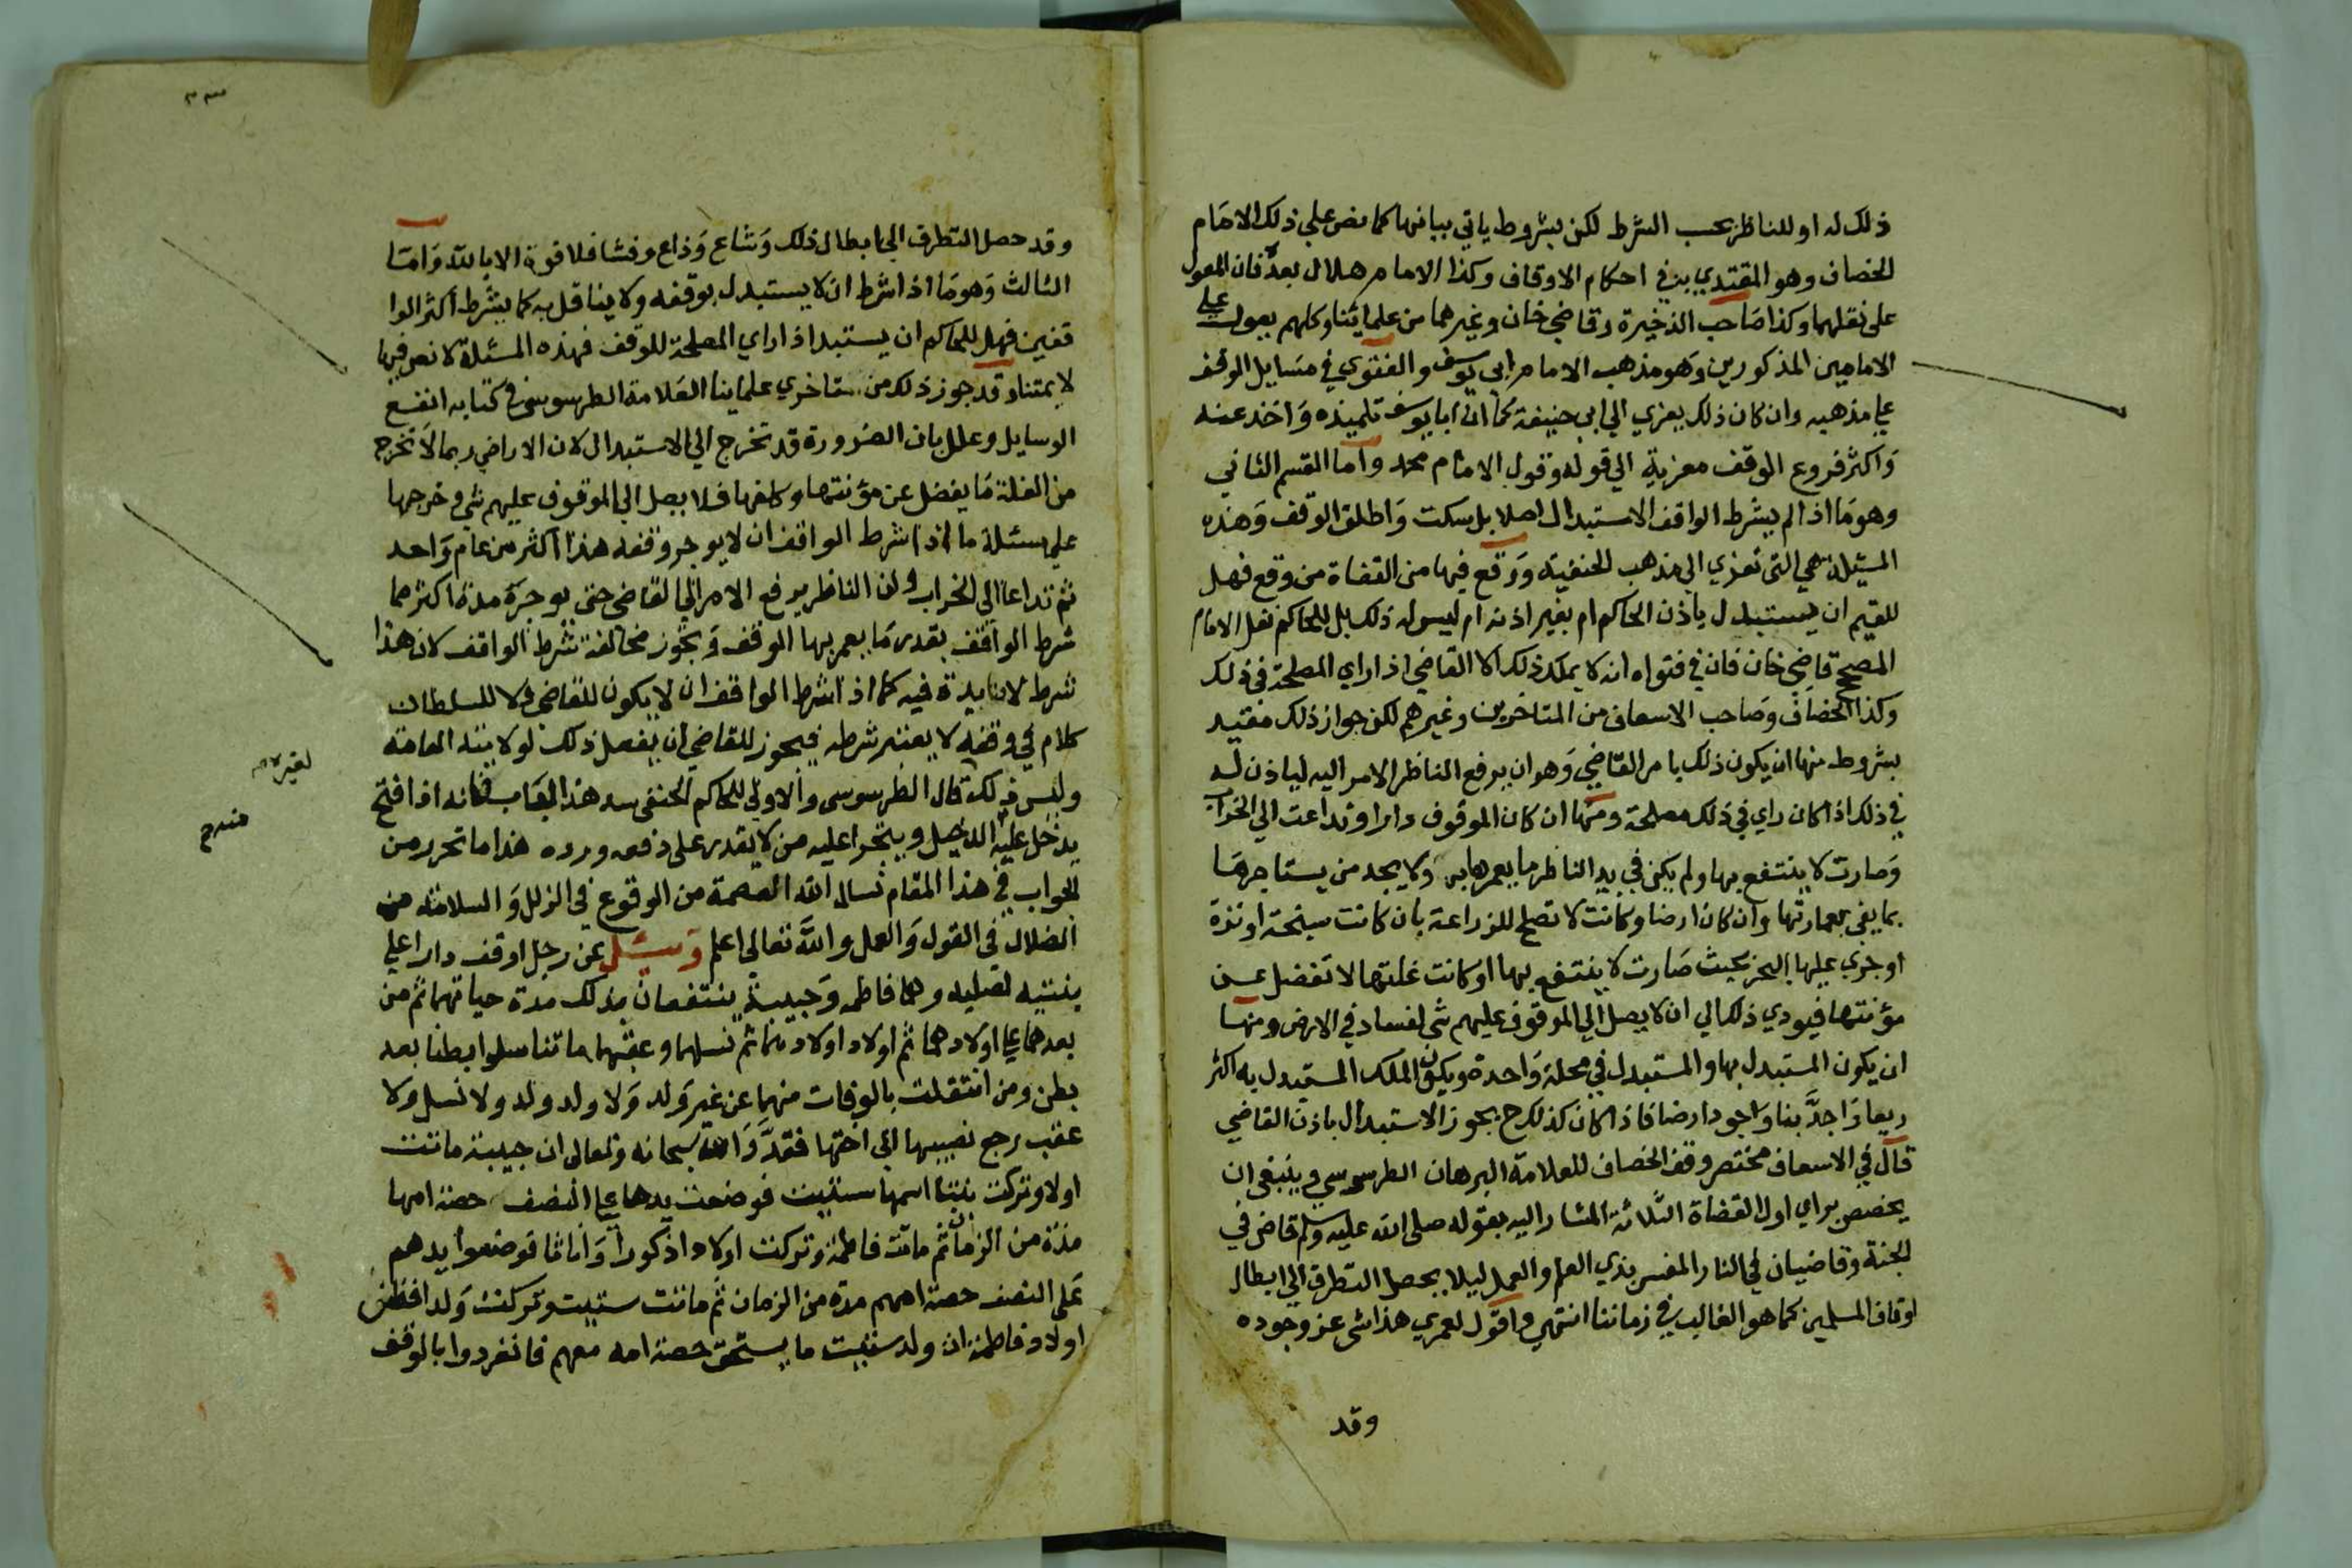 ذلك له او للناظر بحسب الشرط لكن بشروط ياتي بيانها كما نص على ذلك الامام
الخصاف وهو المقتدي به في احكام الاوقاف وكذا الامام هلال بعد فان المعول
على نقلهما وكذا صاحب الذخيرة وقاضي خان وغيرهما من علمائنا وكلهم يعول على
الامامين المذكورين وهو مذهب الامام ابي يوسف والفتوي في مسايل الوقف
علي مذهبه وان كان ذلك يعزي الي ابي حنيفة كما ان ابا يوسف تلميذه واخذ عنه
واكثر فروع الوقف معزية الي قوله وقول الامام محمد واما القسم الثاني
وهو ما اذا لم يشرط الواقف الاستبدال اصلا بل سكت واطلق الوقف وهذه
المسئلة هي التي تعزي الي مذهب الحنفية ووقع فيها من القضاة من وقع فهل
للقيم ان يستبدل ياذن الحاكم ام بغير اذنه ام ليس له ذلك بل للحاكم نقل الامام
المصحح قاضي خان فان في فتواه انه لا يملك ذلك الا القاضي اذا راي المصلحة في ذلك
وكذا الخصاف وصاحب الاسعاف من المتاخرين وغيرهم لكن جواز ذلك مقيد
بشروط منها ان يكون ذلك يامر القاضي وهو ان يرفع الناظر الامر اليه لياذن له
في ذلك اذا كان راي في ذلك مصلحة ومنها ان كان الموقوف دارا وتداعت الي الخراب
وصارت لا ينتفع بها ولم يكن في يد الناظر ما يعمرها به ولا يجد من يستاجرها
بما يفي بعمارتها وان كان ارضا وكانت لا تصلح للزراعة بان كانت سبخة او نزة
او جري عليها البحر بحيث صارت لا ينتفع بها او كانت غلتها لا تفضل عن
مؤنتها فيودي ذلك الي ان لا يصل الي الموقوف عليهم شي لفساد في الارض ومنها
ان يكون المستبدل بها والمستبدل في محلة واحدة ويكون الملك المستبدل به اكثر
ريعا واجد بنا واجود ارضا فاذا كان كذلك ح يجوز الاستبدال باذن القاضي
قال في الاسعاف مختصر وقف الخصاف للعلامة البرهان الطرسوسي وينبغي ان
يخصص براي اول القضاة الثلاثة المشار اليه بقوله صلى الله عليه وسلم قاض في
الجنة وقاضيان في النار المفسر بذي العلم والعمل ليلا يحصل التطرق الي ابطال
اوقاف المسلمين كما هو الغالب في زماننا انتهي واقول لعمري هذا شي عز وجوده
وقد
وقد حصل التطرق الي ابطال ذلك وشاع وذاع وفشا فلا قوة الا بالله واما
الثالث وهو ما اذا شرط ان لا يستبدل بوقفه ولا يناقل به كما يشرط اكثر الوا
قفين فهل للحاكم ان يستبد اذا راي المصلحة للوقف فهذه المسئلة لا نص فيها
لايمتنا وقد جوز ذلك من متاخري علماينا العلامة الطرسوسي في كتابه انفع
الوسايل وعلل بان الضرورة قد تخرج الي الاستبدال لان الاراضي ربما لا تخرج
من الغلة ما يفضل عن مؤنتها وكلفها فلا يصل الي الموقوف عليهم شي وخرجها
علي مسئلة ما اذا شرط الواقف ان لا يوجر وقفه هذا اكثر من عام واحد
ثم تداعا الي الخراب ولن الناظر يرفع الامر الي القاضي حتي يوجره مدة اكثر مما
شرط الواقف بقدر ما يعمر بها الوقف ويجوز مخالفة شرط الواقف لان هذا
شرط لا فايدة فيه كما اذا شرط الواقف ان لا يكون للقاضي ولا للسلطان
كلام في وقفه لا يعتبر شرطه فيجوز للقاضي ان يفعل ذلك لولايته العامة
وليس ذلك قال الطرسوسي والاولي للحاكم الحنفي سد هذا الباب فانه اذا فتح
يدخل عليه الدخيل ويتجرا عليه من لا يقدر على دفعه ورده هذا ما تحرر من
الجواب في هذا المقام نسال الله العصمة من الوقوع في الزلل والسلامة من
الضلال في القول والعمل والله تعالي اعلم وسئل عن رجل اوقف دارا علي
بنتيه لصلبه وهما فاطمه وحبيبة ينتفعان بذلك مدة حياتهما ثم من
بعدهما علي اولادهما ثم اولاد اولادهما ثم نسلهما وعقبهما ما تناسلوا بطنا بعد
بطن ومن انتقلت بالوفات منهما عن غير ولد ولا ولد ولد ولا نسل ولا
عقب رجع نصيبها الي اختها فقدر الله سبحانه وتعالى ان حبيبة ماتت
اولا وتركت بنتا اسمها ستيت فوضعت يدها علي النصف حصة امها
مدة من الزمان ثم ماتت فاطمة وتركت اولادا ذكورا واناثا فوضعوا يدهم
على النصف حصة امهم مدة من الزمان ثم ماتت ستيت وتركت ولدا فظن
اولاد فاطمة ان ولد ستيت ما يستحق حصة امه معهم فانفردوا بالوقف